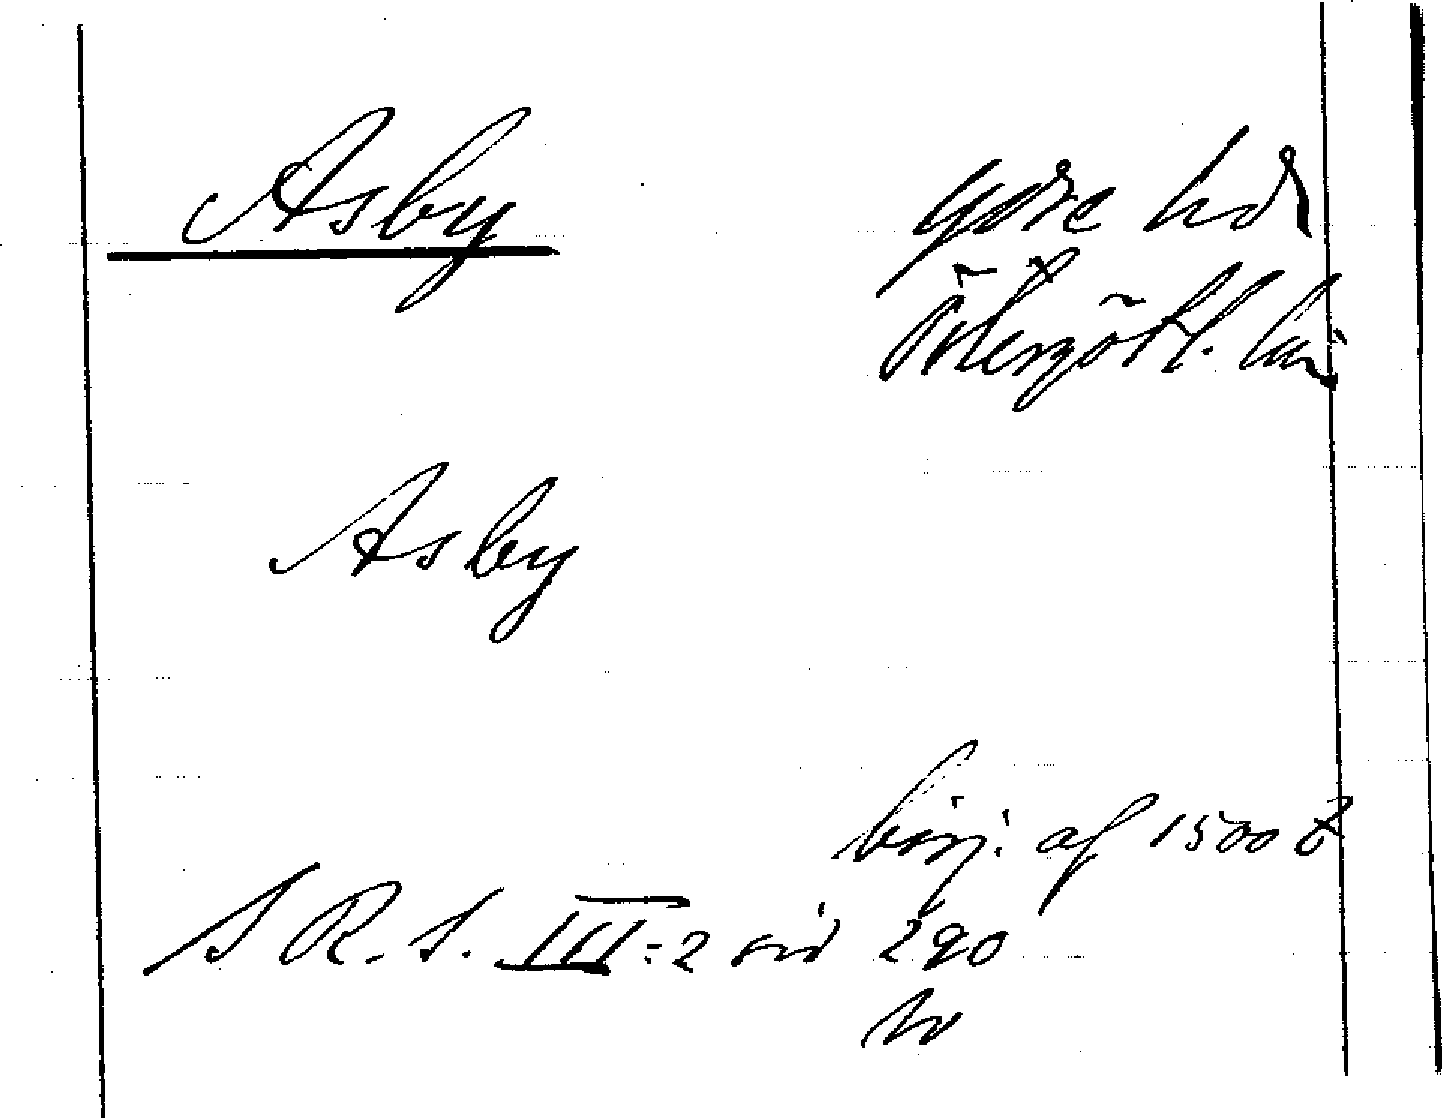 Asby
Ydre hd
Östergötl. län
Asby
börj. af 1500 t
S. R. S. III:2 sid 290